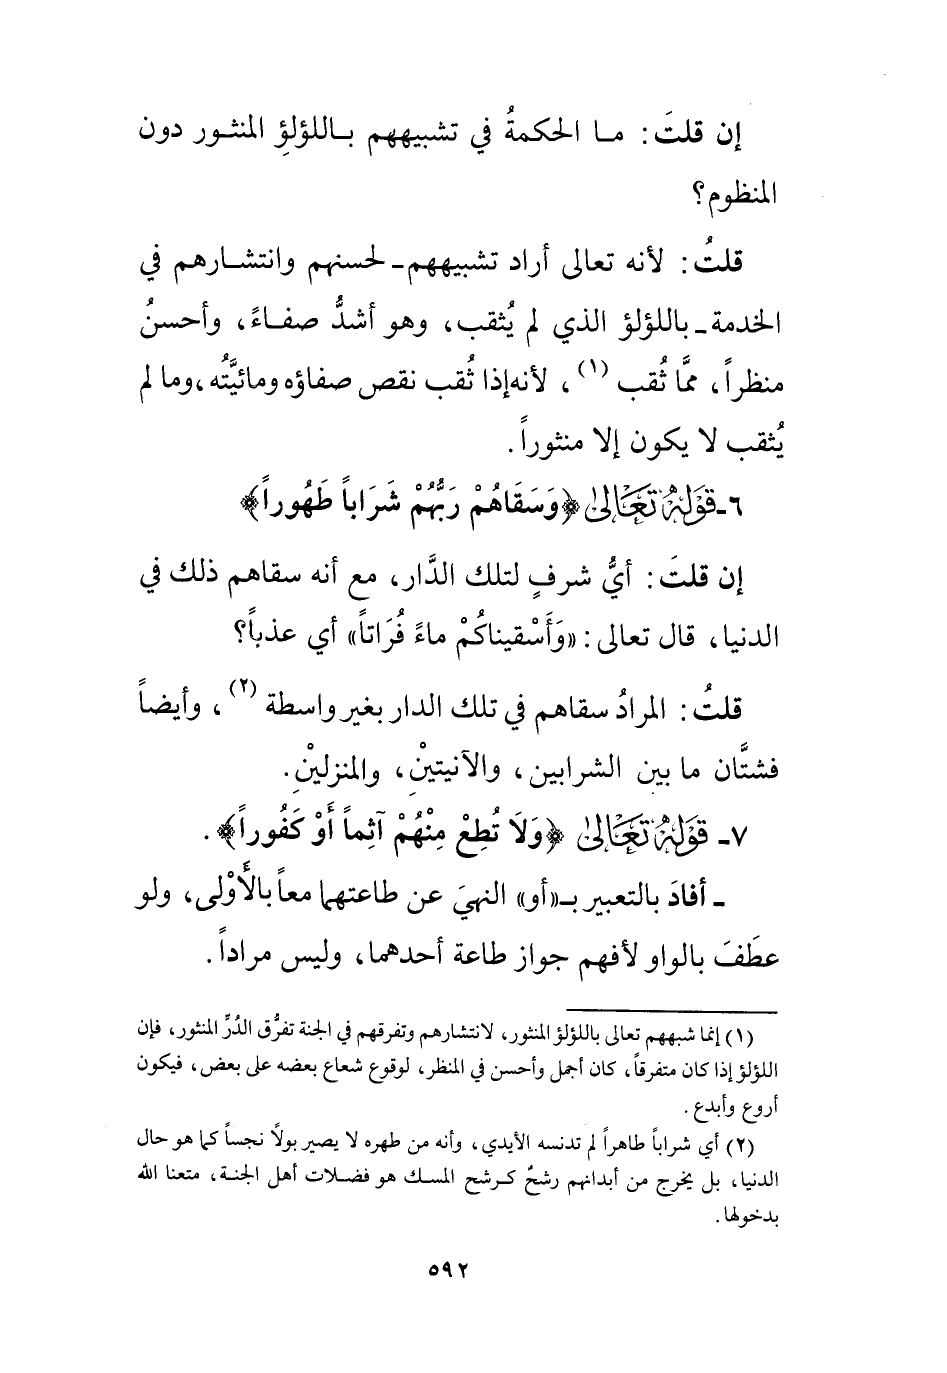 إن قلتَ: ما الحكمةُ في تشبيههم باللؤلؤِ المنثور دون
المنظوم؟
قلتُ: لأنه تعالى أراد تشبيههم - لحسنهم وانتشارهم في
الخدمة - باللؤلؤ الذي لم يُثقب، وهو أشدُّ صفاءً، وأحسنُ
منظراً، ممَّا ثُقب (١)، لأنه إذا ثُقب نقص صفاؤه ومائيَّتُه، وما لم
يُثقب لا يكون إلا منثوراً.
٦ـ قَوْلُهُ تَعَالَىٰ ﴿وَسَقَاهُمْ رَبُّهُمْ شَرَاباً طَهُوراً﴾
إن قلتَ: أيُّ شرفٍ لتلك الدَّار، مع أنه سقاهم ذلك في
الدنيا، قال تعالى: «وَأَسْقيناكُمْ ماءً فُرَاتاً» أي عذباً؟
قلتُ: المرادُ سقاهم في تلك الدار بغير واسطة (٢)، وأيضاً
فشتَّان ما بين الشرابين، والآنيتيْنِ، والمنزليْنِ.
٧ـ قَوْلُهُ تَعَالَىٰ ﴿وَلَا تُطِعْ مِنْهُمْ آثِماً أَوْ كَفُوراً﴾.
ـ أفادَ بالتعبير بـ«أو» النهيَ عن طاعتهما معاً بالأَوْلى، ولو
عطَفَ بالواو لأفهم جواز طاعة أحدهما، وليس مراداً.
(١) إنما شبههم تعالى باللؤلؤ المنثور، لانتشارهم وتفرقهم في الجنة تفرُّق الدُرِّ المنثور، فإن
اللؤلؤ إذا كان متفرقاً، كان أجمل وأحسن في المنظر، لوقوع شعاع بعضه على بعض، فيكون
أروع وأبدع.
(٢) أي شراباً طاهراً لم تدنسه الأيدي، وأنه من طهره لا يصير بولًا نجساً كما هو حال
الدنيا، بل يخرج من أبدانهم رشحٌ كرشح المسك هو فضلات أهل الجنة، متعنا الله
بدخولها.
٥٩٢